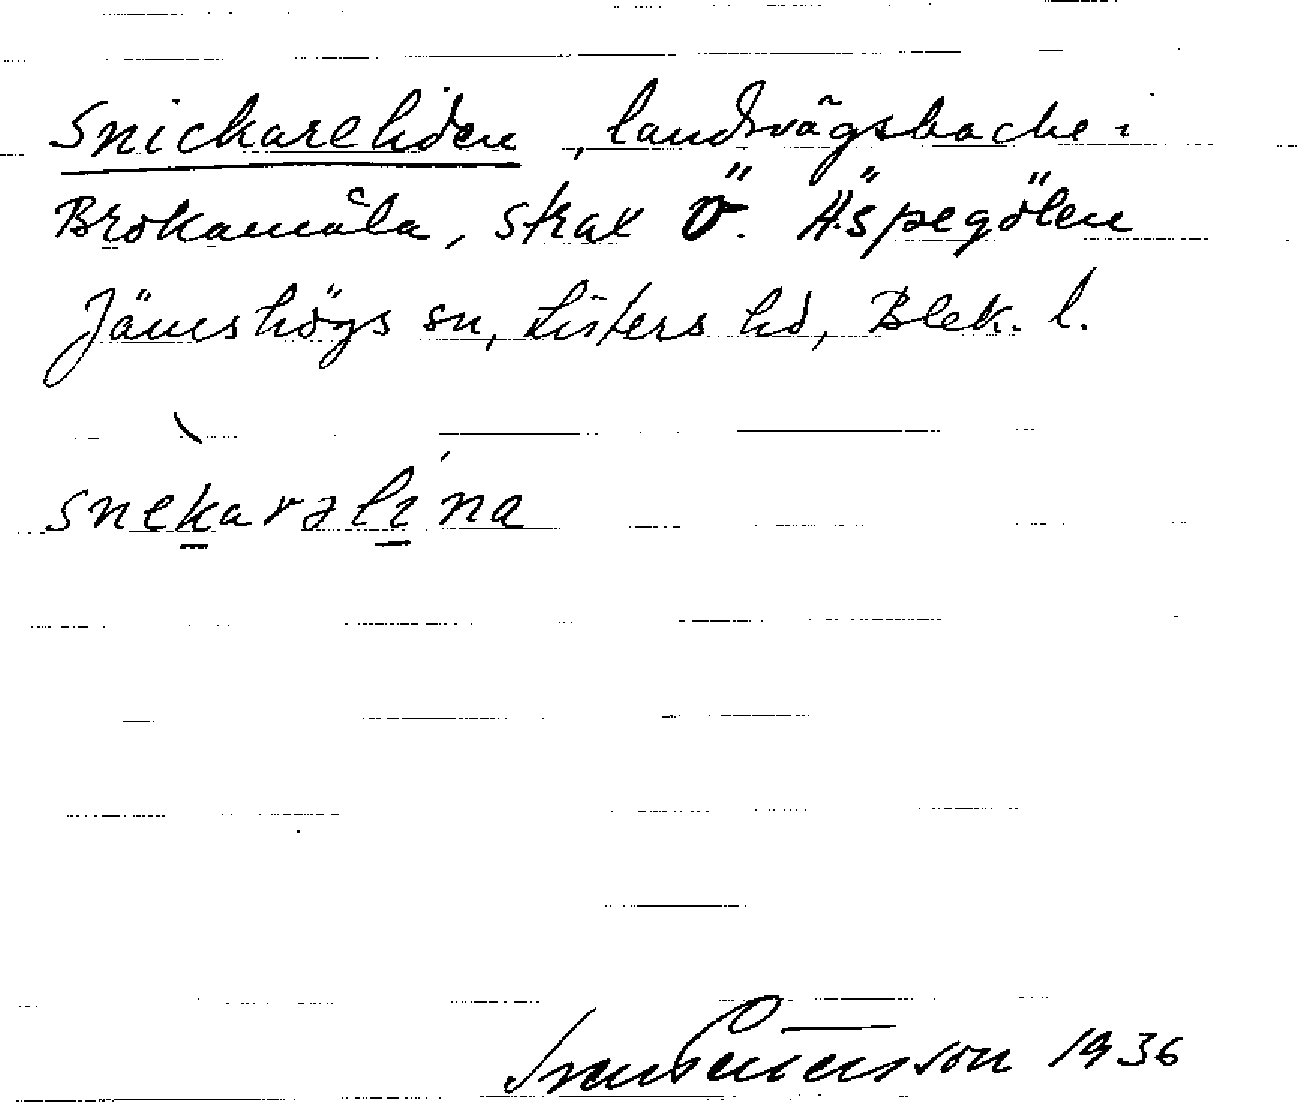 Snickareliden, landsvägsbacke i
Brokamåla, strax Ö. Äspegölen
Jämshögs sn, Listers hd, Blek. l.
snekarəlína
Sven Benson 1936